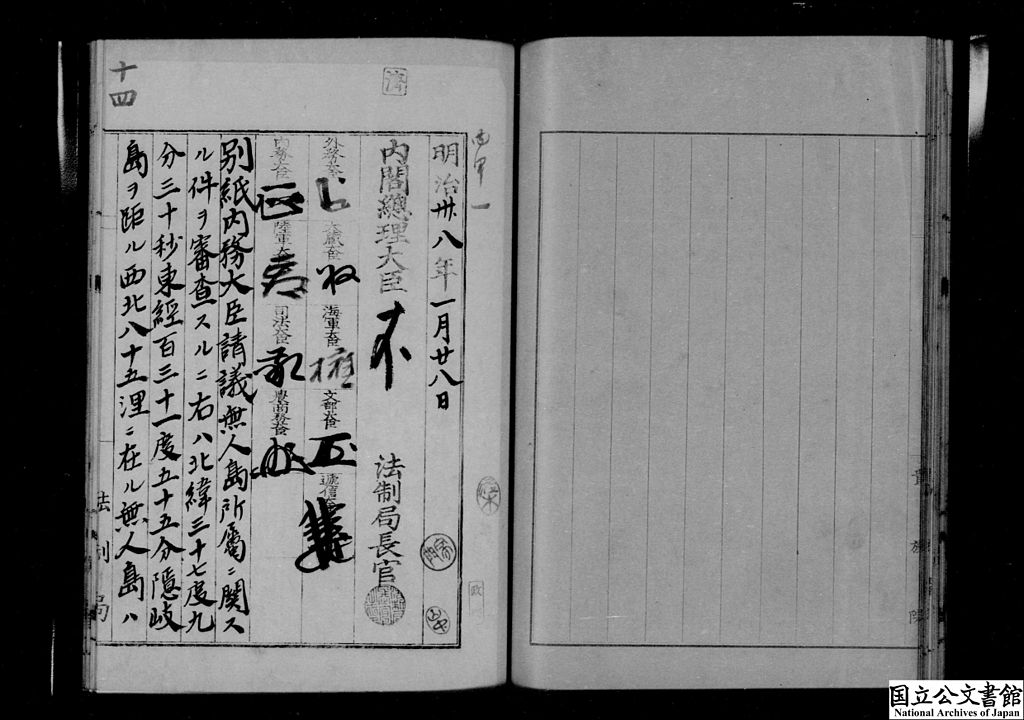 十四
済
明治卅八年一月廿八日
内閣總理大臣
法制局長官
外務大臣
大藏大臣
海軍大臣
文部大臣
遞信大臣
内務大臣
陸軍大臣
司法大臣
農商務大臣
別紙内務大臣請議無人島所屬ニ關ス
ル件ヲ審査スルニ右ハ北緯三十七度九
分三十秒東經百三十一度五十五分隱岐
島ヲ距ル西北八十五浬ニ在ル無人島ハ
法制局
国立公文書館
National Archives of Japan